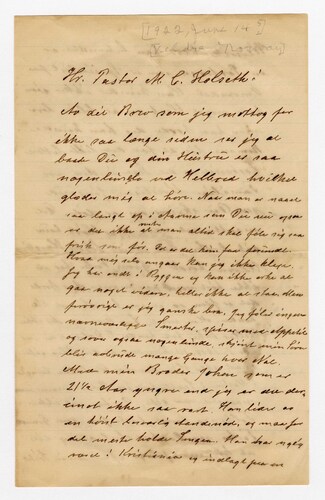 [1922, June 14?]
Hr. Pastor M. C. Holseth!
Av dit Brev som jeg mottog for
ikke saa længe siden ser jeg at
baade Du og din Hustru er saa
nogenlunde ved Helbred hvilket
glæder mig at høre. Naar man er naaet
saa langt op i Aarene som Du
er det ikke at man altid skal føle sig saa
frisk som før.
Hvad mig selv angaar kan jeg ikke klage
jeg har ondt i Ryggen og kan ikke
gaa noget videre, heller ikke at staa men
er jeg ganske bra. Jeg føler ingen
Smerter, spiser med Appetit
og sover ogsaa nogenlunde skjønt min
mange Gange hver Nat.
Med min Broder Johan som er
2 1/2 Aar yngre end jeg er det der
imot ikke saa vel. Han lider av
en høist Aandenød, og maa for
det meste holde Sengen. Han var nylig
i Kristiania og indlagt paa en